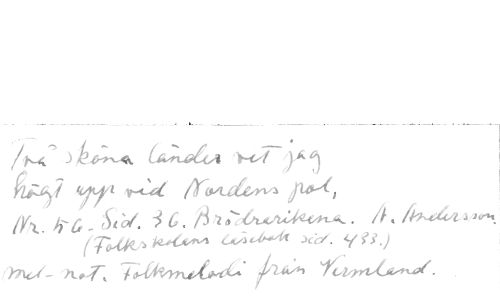 Två sköna länder vet jag
högt upp vid Nordens pol,
Nr. 56. Sid. 36. Brödrarikena. A. Andersson.
(Folkskolans läsebok sid. 433.)
mel-not. Folkmelodi från Vermland.